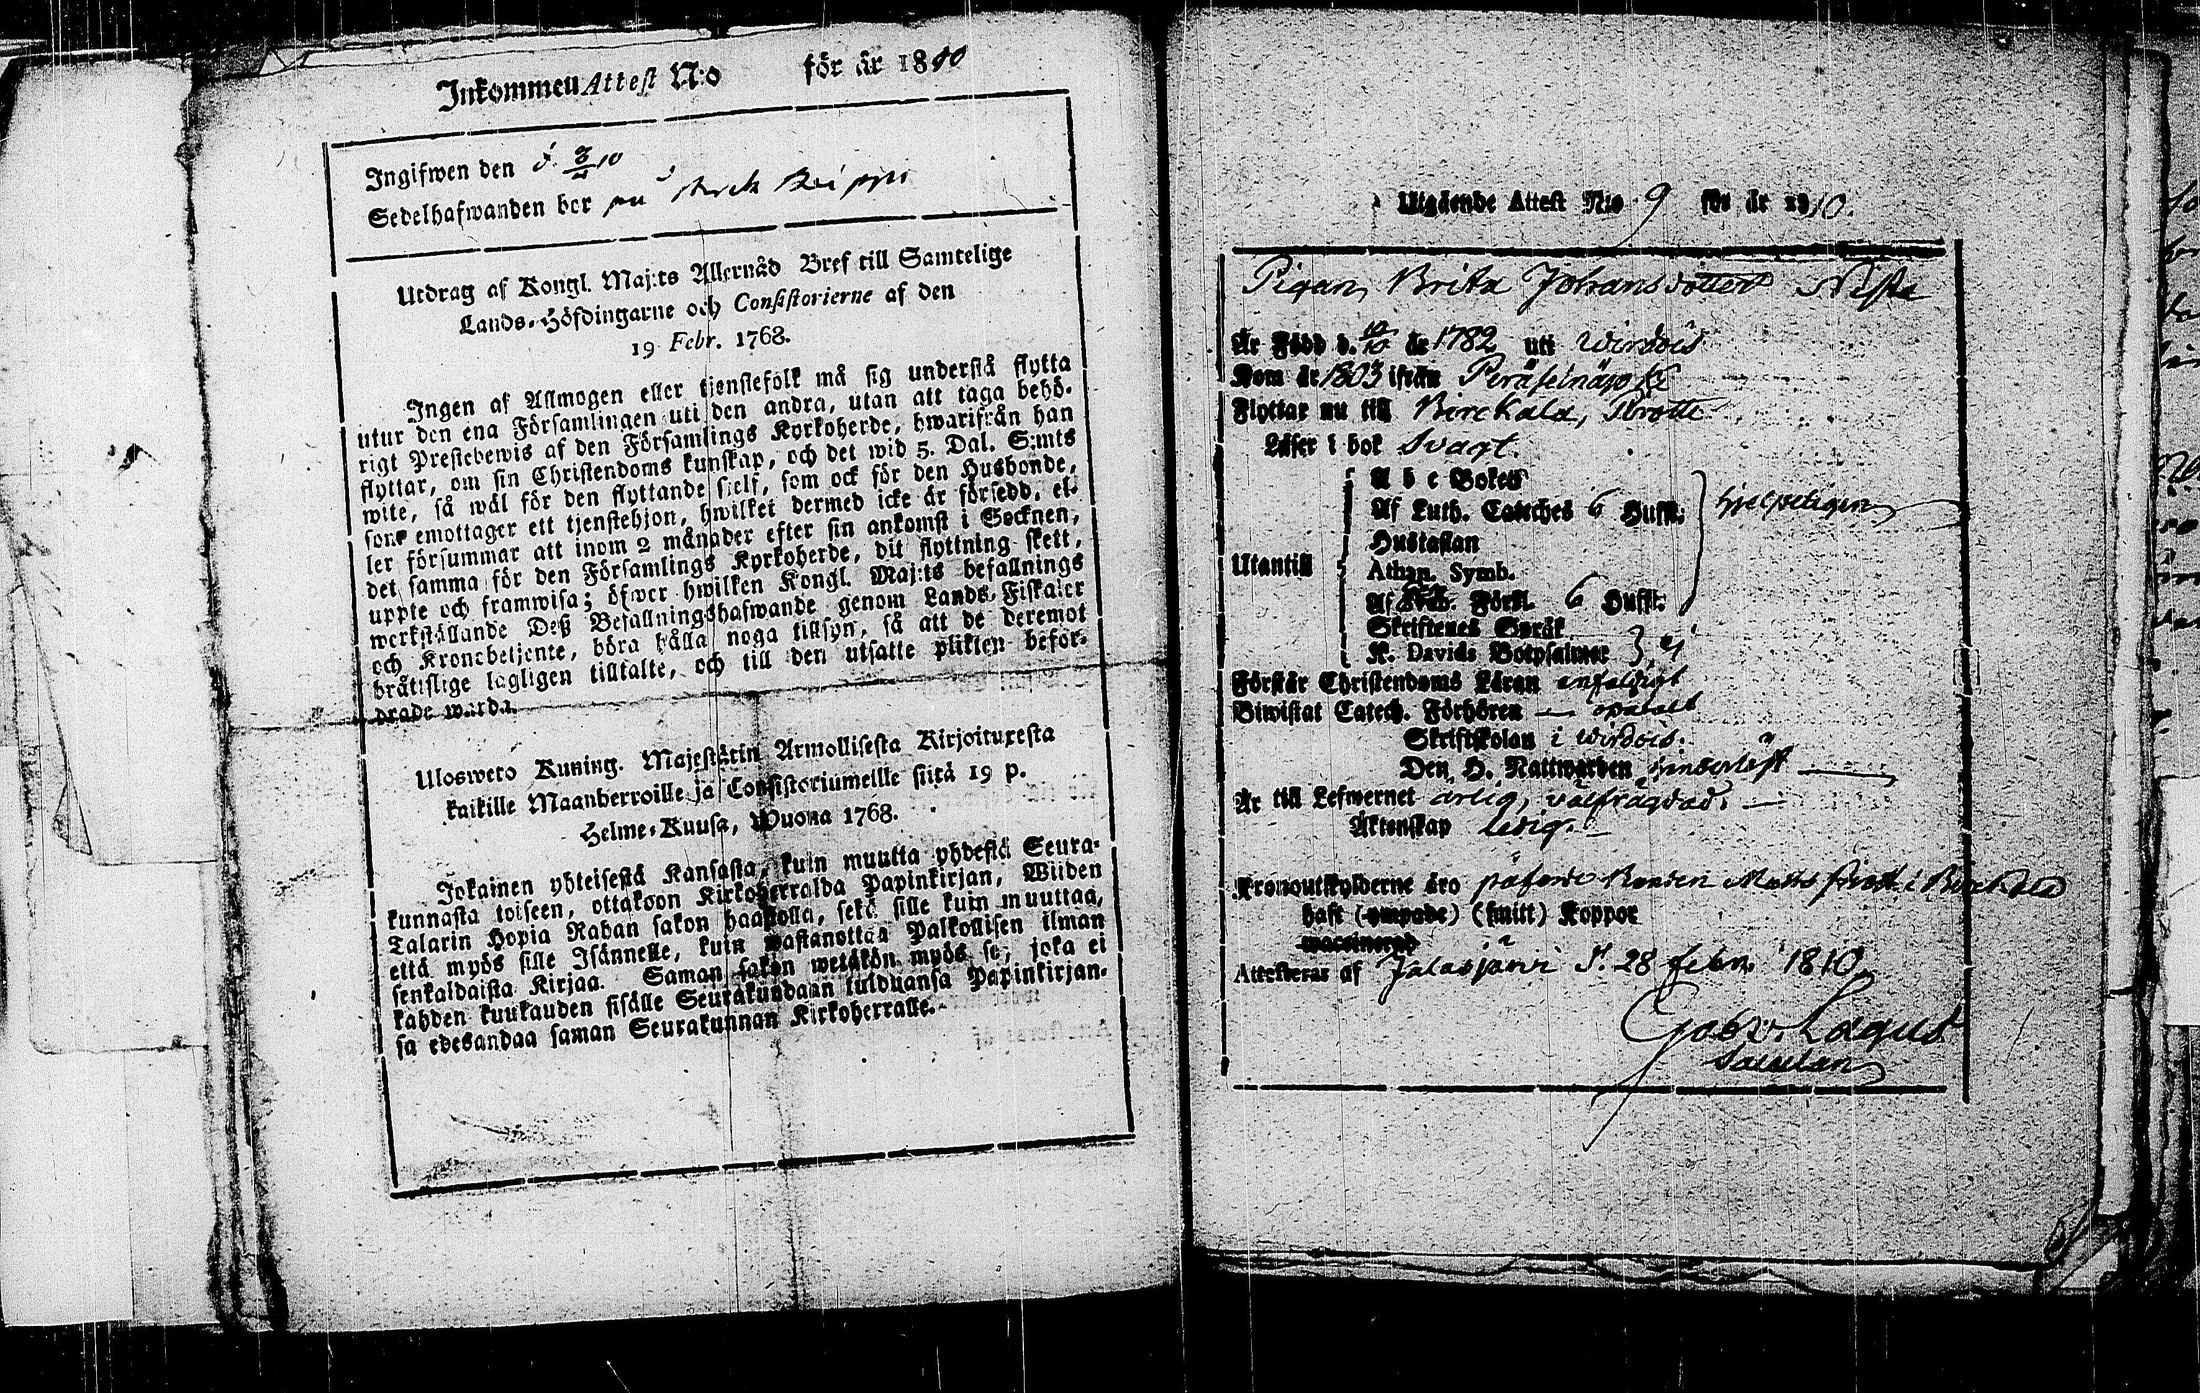 Inkommen Attest N:o för år 1810
Ingifwen den d. 8/4 10
Sedelhafwanden bor på
Utdrag af Kongl. Maj:ts Allernåd Bref till Samtelige
Lands-Höfdingarne och Consistorierne af den
19 Febr. 1768.
Ingen af Allmogen eller tjenstefolk må sig understå flytta
utur den ena Församlingen uti den andra, utan att taga behö-
rigt Prestebewis af den Församlings Kyrkoherde, hwarifrån han
flyttar, om sin Christendoms kunskap, och det wid 5. Dal. S:mts
wite, så wäl för den flyttande sjelf, som ock för den Husbonde,
som emottager ett tjenstehjon, hwilket dermed icke är försedd, el-
ler försummar att inom 2 månader efter sin ankomst i Socknen,
det samma för den Församlings Kyrkoherde, dit flyttning skett,
uppte och framwisa; öfwer hwilken Kongl. Maj:ts befallnings
werkställande Deß Befallningshafwande genom Lands-Fiskaler
och Kronobetjente, böra hålla noga tillsyn, så att de deremot
bråtislige lagligen tilltalte, och till den utsatte plikten beför-
drade warda.
Ulosweto Kuning. Majestätin Armollisesta Kirjoituxesta
kaikille Maanherroille ja Consistoriumeille siitä 19 p.
Helme-Kuusa, Wuona 1768.
Jokainen yhteisestä Kansasta, kuin muutta yhdestä Seura-
kunnasta toiseen, ottakoon Kirkoherralda Papinkirjan, Wiiden
Talarin Hopia Rahan sakon haastolla, sekä sille kuin muuttaa,
että myös sille Isännelle, kuin wastanottaa Palkollisen ilman
senkaldaista Kirjaa. Saman sakon wetäkön myös se, joka ei
kahden kuukauden sisälle Seurakundaan tulduansa Papinkirjan-
sa edesandaa saman Seurakunnan Kirkoherralle.
Utgående Attest N:o 9 för år 1810.
Pigan Brita Johansdotter Nista
Är Född d. 10/10 år 1782 uti Wirdois
Kom år 1803 ifrån Peräseinäjoki
Flyttar nu till Birckala, Strotte
Läser i bok Svagt.
A b c Boken
Af Luth. Catches 6 Hufst. hjelpeligen
Hustaflan
Utantill
Athan. Symb.
Af Förkl. 6 Hufst.
Skriftenes Språk
K. Davids Botpsalmer ej
Förstår Christendoms Läran enfaldigt
Biwistat Catech. Förhören
Skriftskolan i Wirdois.
Den H. Nattwarden
Är till Lefwernet ärlig, välfrägdad.
Äktenskap ledig.
Kronoutskylderne äro påförde Bonden Matts i Birckala
haft (ympade) (smitt) Koppor
waccinerad
Attesteras af Jalasjärvi d. 28 febr. 1810
Gabr. Lagus
Sacellan